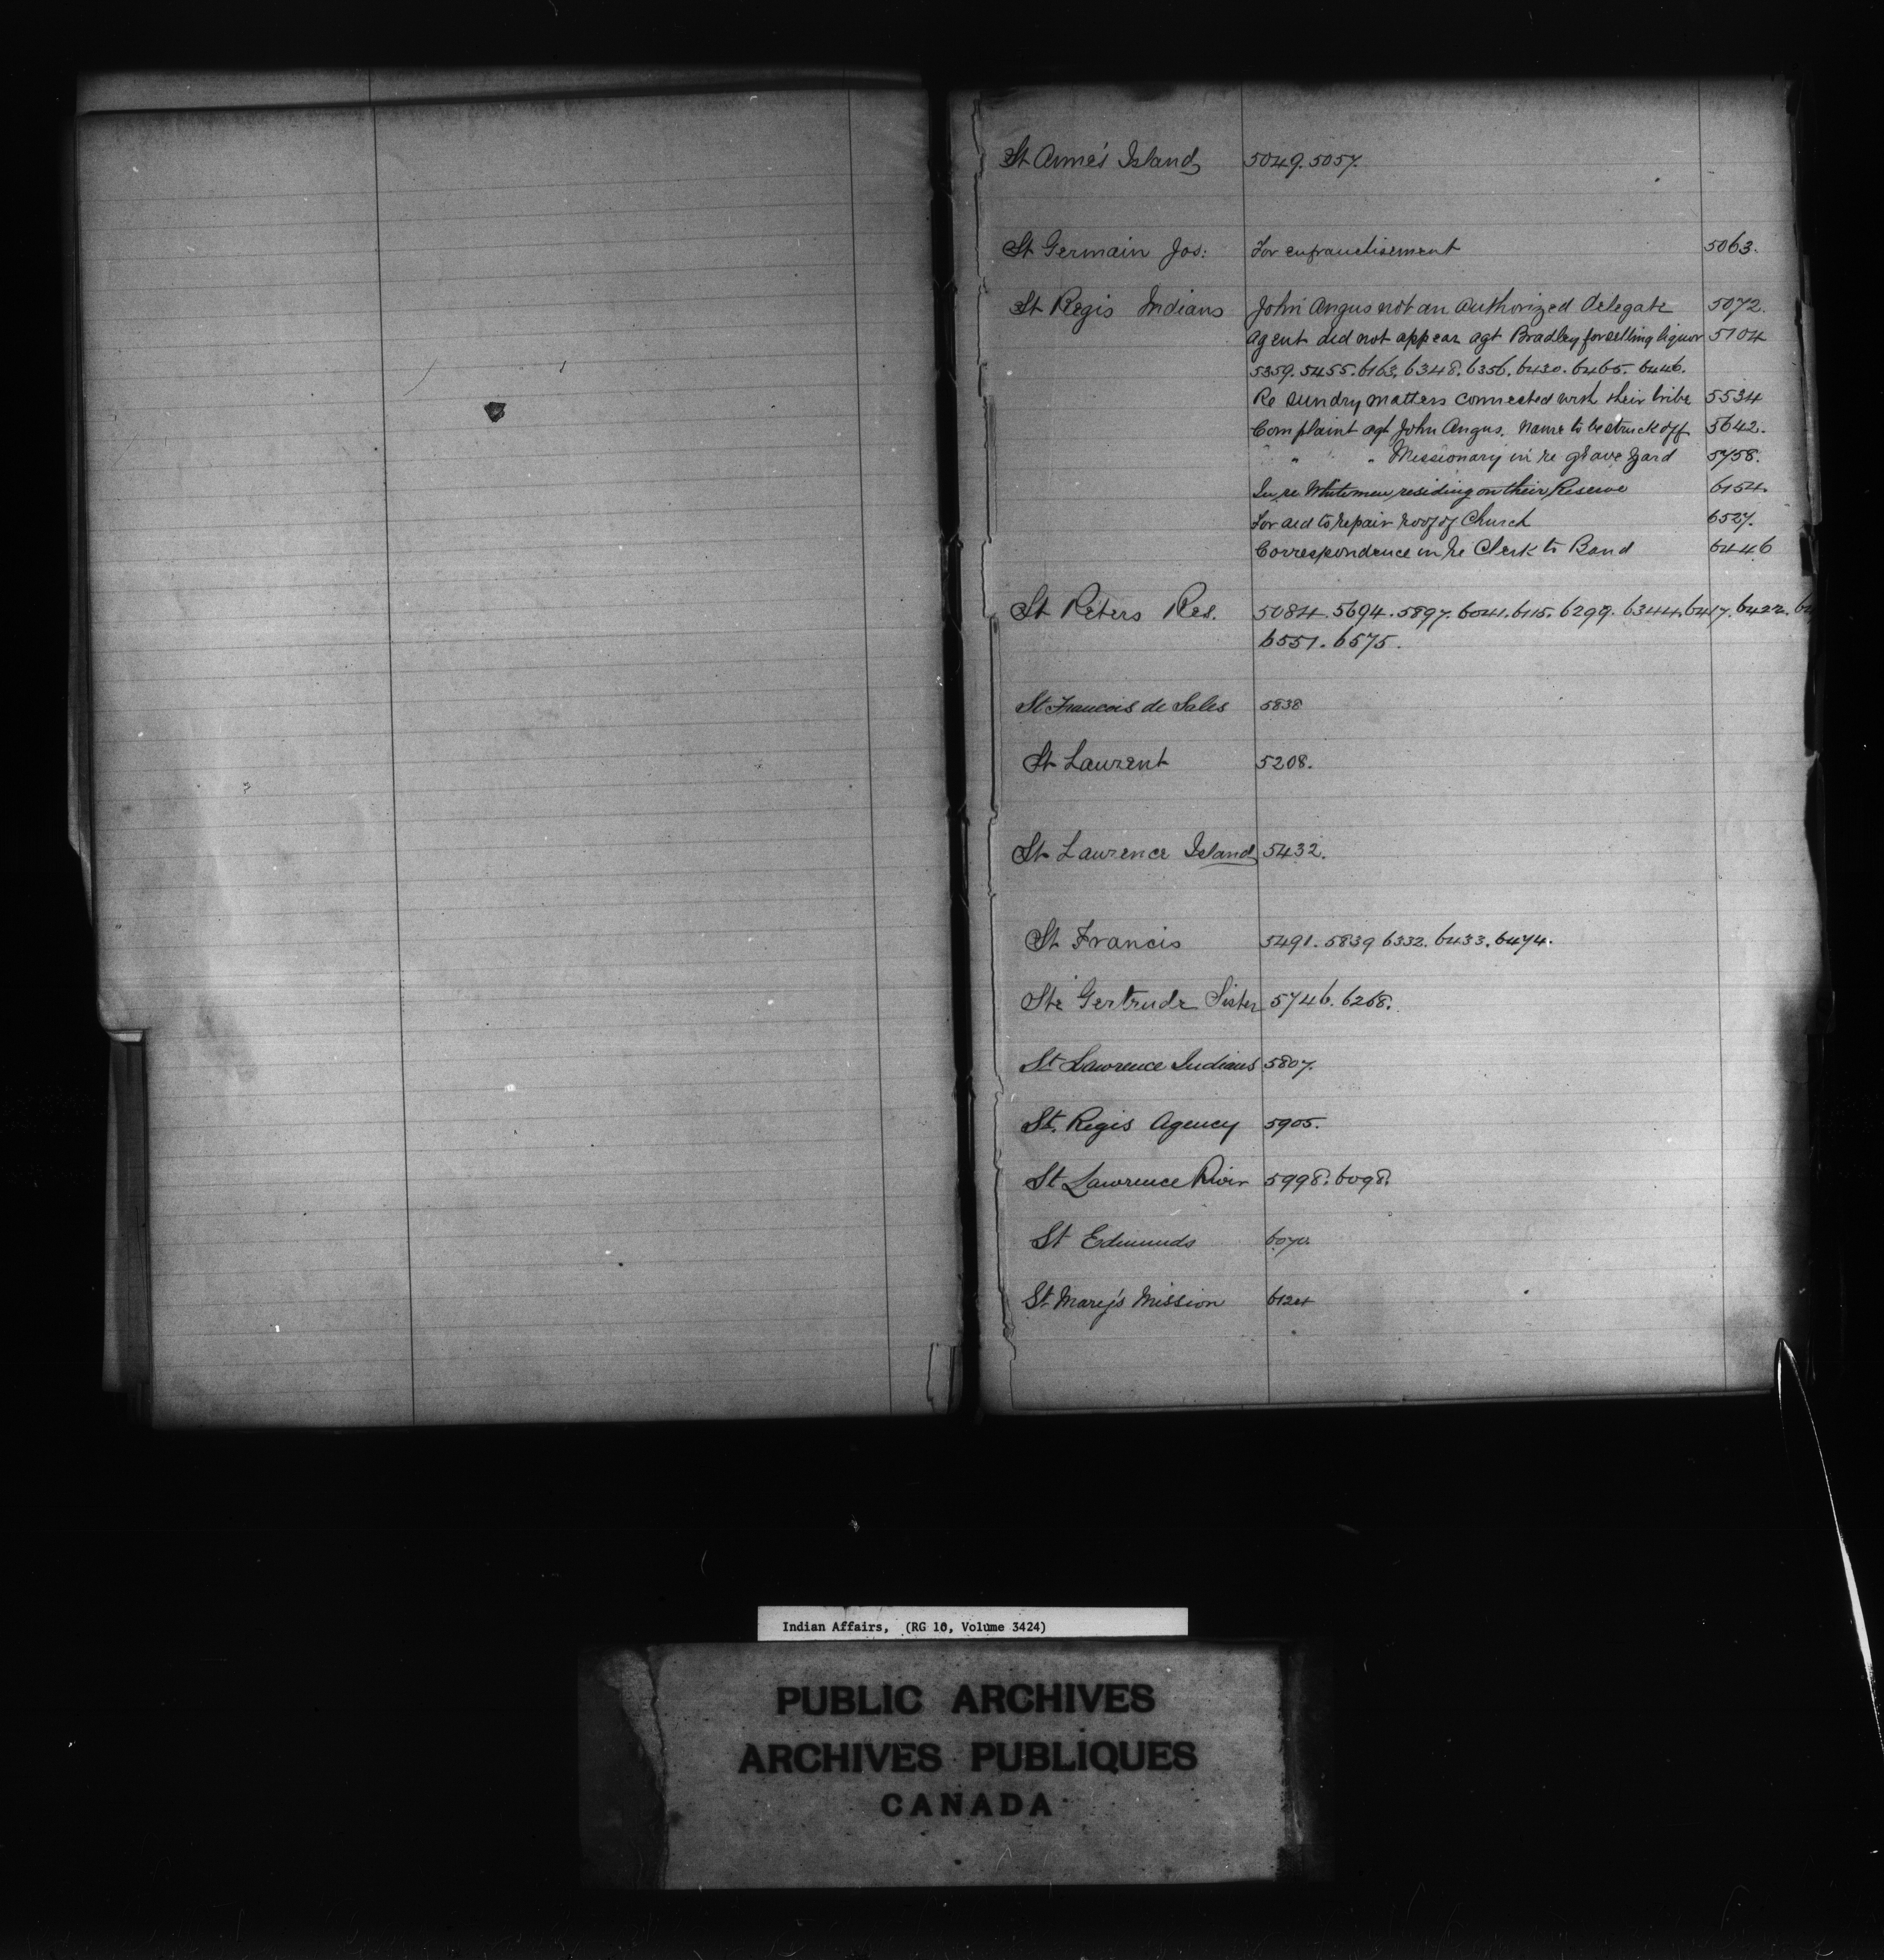 St Anne's Island 5049. 5057.
St Germain Jos: For enfranchisement 5063.
St Regis Indians John Angus not an authorized delegate 5072.
Agent did not appear agt Bradley for selling liquor 5104
5359. 5455. 6163. 6348. 6356. 6430. 6465. 6446.
Re sundry matters connected with their tribe 5534
Complaint agt John Angus. Name to be struck off 5642.
" " Missionary in re grave yard 5758.
In re Whitemen residing on their Reserve 6154.
For aid to repair roof of Church 6527.
Correspondence in re Clerk to Band 6446
St Peters Res. 5084. 5694. 5897. 6041. 6115. 6299. 6344. 6417. 6422.
6551. 6575.
St Francois de Sales 5838
St Laurent 5208.
St Lawrence Island 5432.
St Francis 5491. 5839 6332. 6433. 6474.
Ste Gertrude Sister 5746. 6268.
St Lawrence Indians 5807.
St. Regis Agency 5905.
St Lawrence River 5998. 6098.
St Edmunds
St Mary's Mission 6124
Indian Affairs, (RG 10, Volume 3424)
PUBLIC ARCHIVES
ARCHIVES PUBLIQUES
CANADA